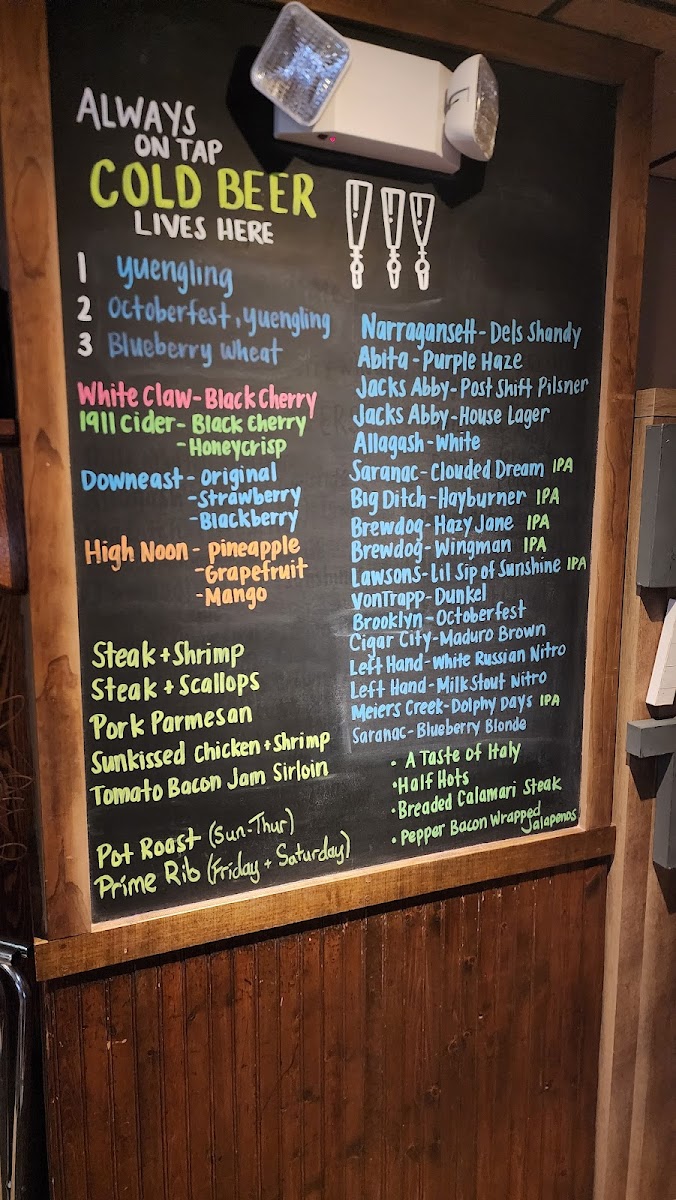 ALWAYS
ON TAP
COLD BEER
LIVES HERE
1 Yuengling
2 Octoberfest, Yuengling
3 Blueberry Wheat
White Claw - Black Cherry
1911 Cider - Black Cherry
- Honeycrisp
Downeast - Original
- Strawberry
- Blackberry
High Noon - Pineapple
- Grapefruit
- Mango
Steak + Shrimp
Steak + Scallops
Pork Parmesan
Sunkissed Chicken + Shrimp
Tomato Bacon Jam Sirloin
Pot Roast (Sun-Thur)
Prime Rib (Friday + Saturday)
Narragansett - Dels Shandy
Abita - Purple Haze
Jacks Abby - Post Shift Pilsner
Jacks Abby - House Lager
Allagash - White
Saranac - Clouded Dream IPA
Big Ditch - Hayburner IPA
Brewdog - Hazy Jane IPA
Brewdog - Wingman IPA
Lawsons - Lil Sip of Sunshine IPA
VonTrapp - Dunkel
Brooklyn - Octoberfest
Cigar City - Maduro Brown
Left Hand - White Russian Nitro
Left Hand - Milk Stout Nitro
Meiers Creek - Dolphy Days IPA
Saranac - Blueberry Blonde
• A Taste of Italy
• Half Hots
• Breaded Calamari Steak
• Pepper Bacon Wrapped
Jalapenos